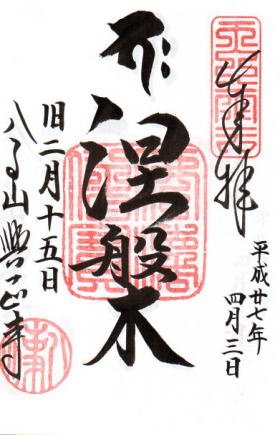 奉拝
平成廿七年
四月三日
涅槃
旧二月十五日
八事山 興正寺